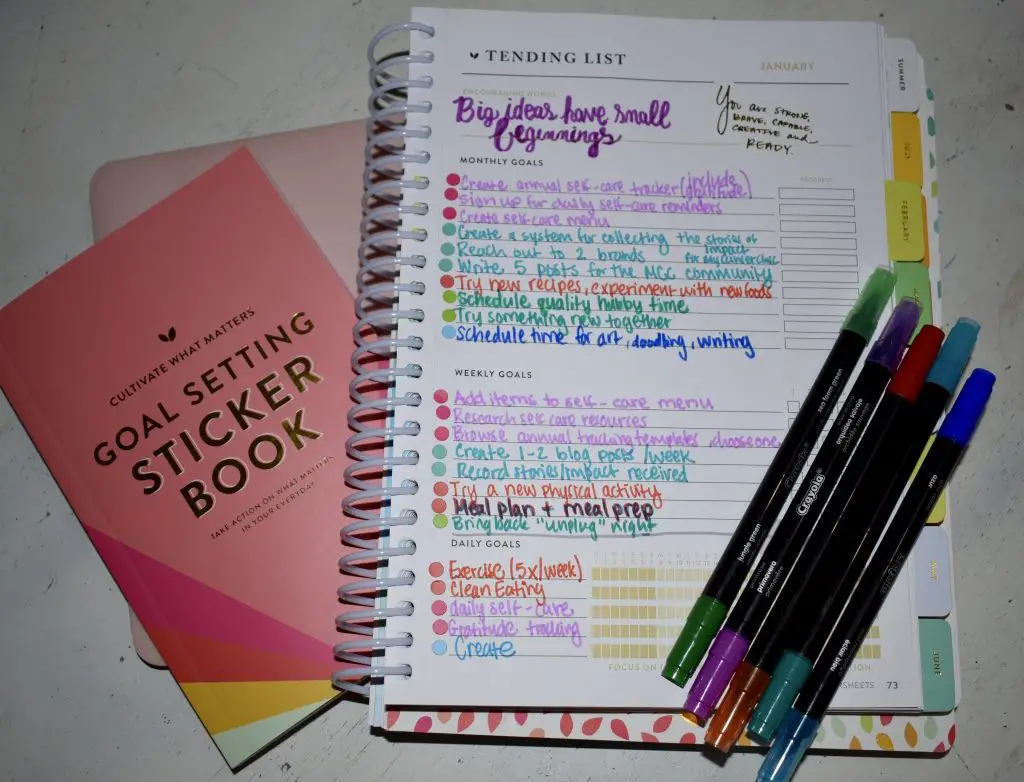 TENDING LIST
JANUARY
ENCOURAGING WORDS
Big ideas have small
beginnings
You are STRONG,
BRAVE, CAPABLE,
CREATIVE and
READY.
MONTHLY GOALS
PROGRESS
Create annual self-care tracker (include gratitude)
Sign up for daily self-care reminders
Create self-care menu
Create a system for collecting the stories of impact
Reach out to 2 brands
Write 5 posts for the MCC community
Try new recipes, experiment with new foods
Schedule quality hubby time
Try something new together
Schedule time for art, doodling, writing
WEEKLY GOALS
Add items to self-care menu
Research self care resources
Browse annual tracking templates, choose one
Create 1-2 blog posts/week
Record stories/impact received
Try a new physical activity
Meal plan + meal prep
Bring back "unplug" night
DAILY GOALS
Exercise (5x/week)
Clean Eating
daily self-care
Gratitude tracking
Create
FOCUS ON
73
SUMMER
JULY
FEBRUARY
MAY
JUNE
CULTIVATE WHAT MATTERS
GOAL SETTING
STICKER
BOOK
TAKE ACTION ON WHAT MATTERS
IN YOUR EVERYDAY
sea foam green
jungle green
Crayola
primavera
orquídea salvaje